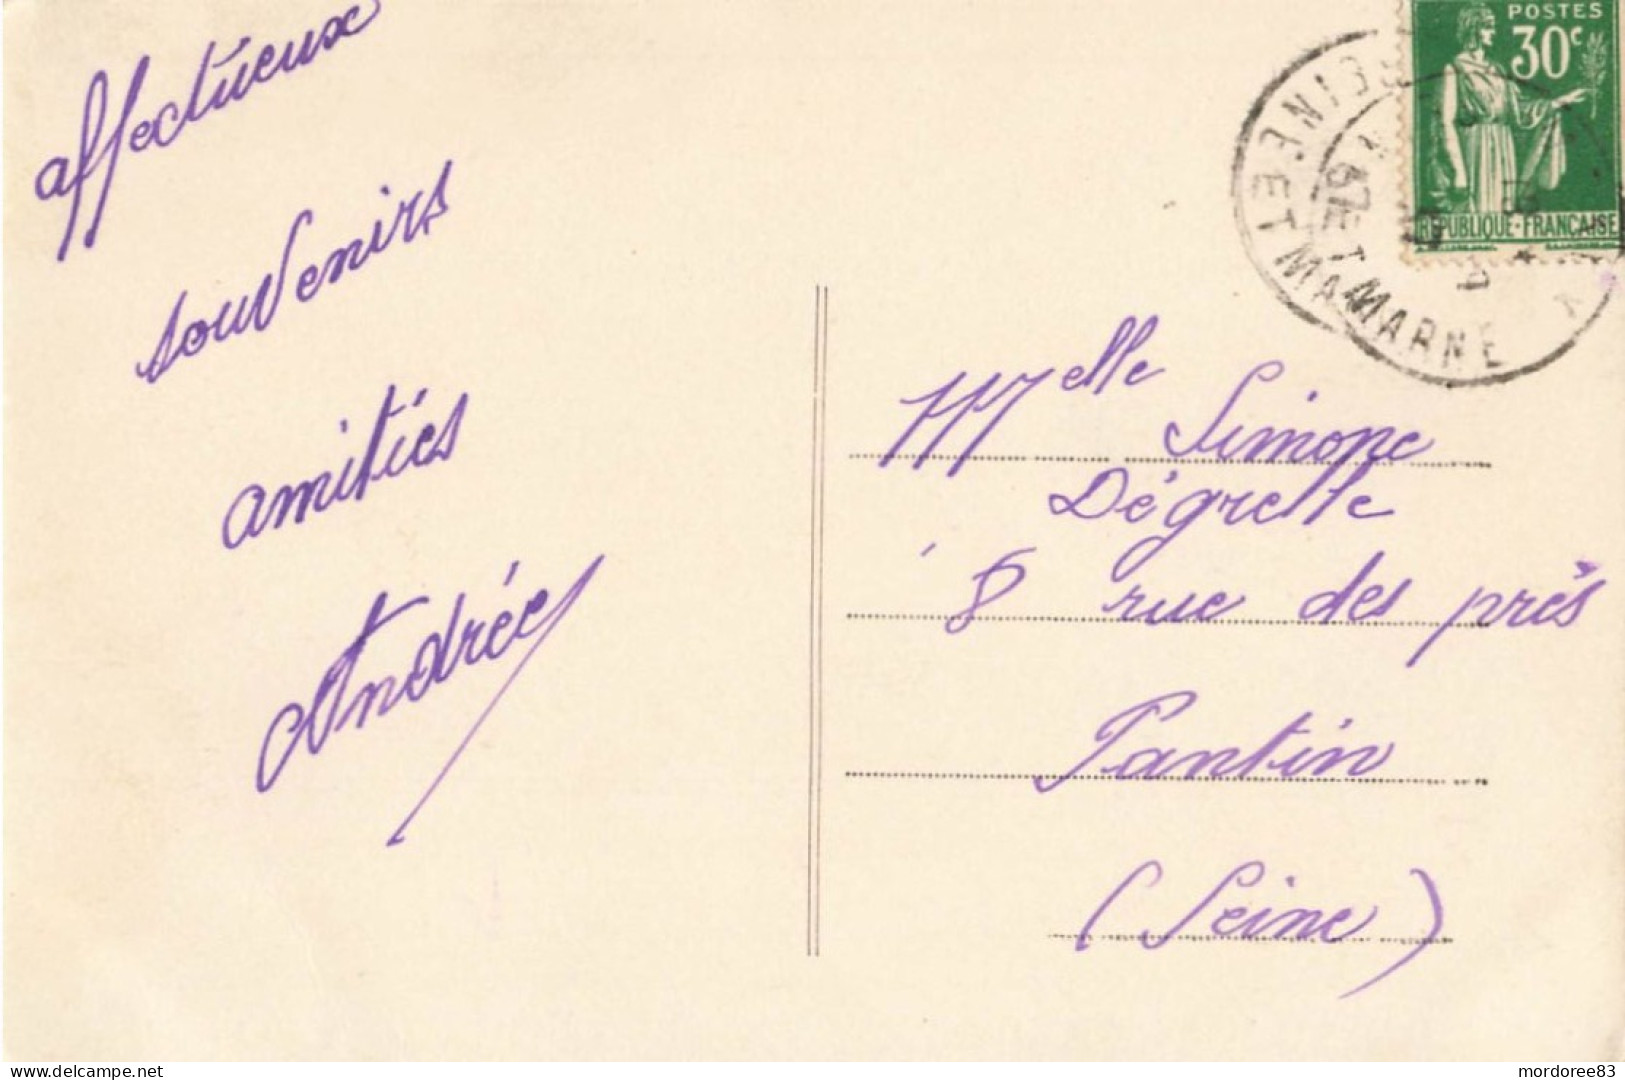 affectueux
souvenirs
amitiés
Andrée
POSTES
30c
REPUBLIQUE-FRANÇAISE
SEINE ET MARNE
ET MARNE
Melle Simone
Dégrelle
8 rue des près
Pantin
(Seine)
delcampe.net
mordoree83